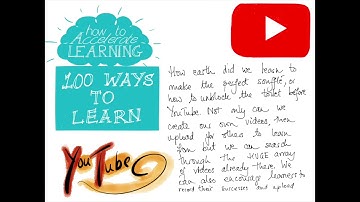 how to
Accelerate
LEARNING
100 WAYS
TO
LEARN
YouTube
How earth did we learn to
make the perfect soufflé, or
how to unblock the toilet before
YouTube. Not only can we
create our own videos, then
upload for others to learn
from but we can search
through the HUGE array
of videos already there. We
can also encourage learners to
record their successes and upload